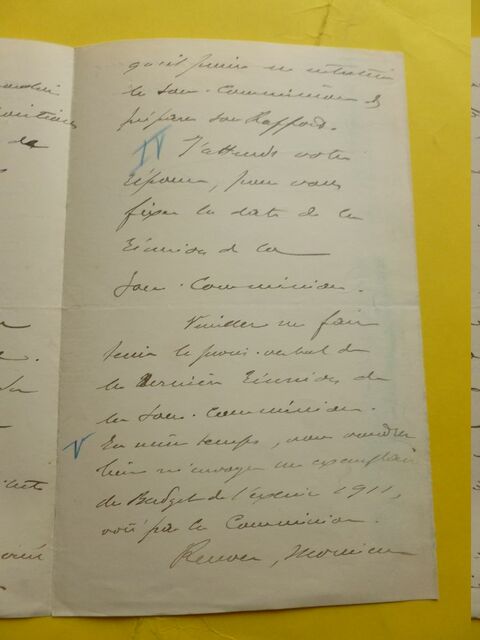 qu'il puisse en entretenir
la Sous-Commission &
préparer son Rapport.
IV J'attends votre
Réponse, pour vous
fixer la date de la
Réunion de la
Sous-Commission.
Veuillez me faire
tenir le procès-verbal de
la Dernière Réunion de
la Sous-Commission.
V En même temps, vous voudrez
bien m'envoyer un exemplaire
du Budget de l'exercice 1911,
voté par la Commission.
Recevez, Monsieur